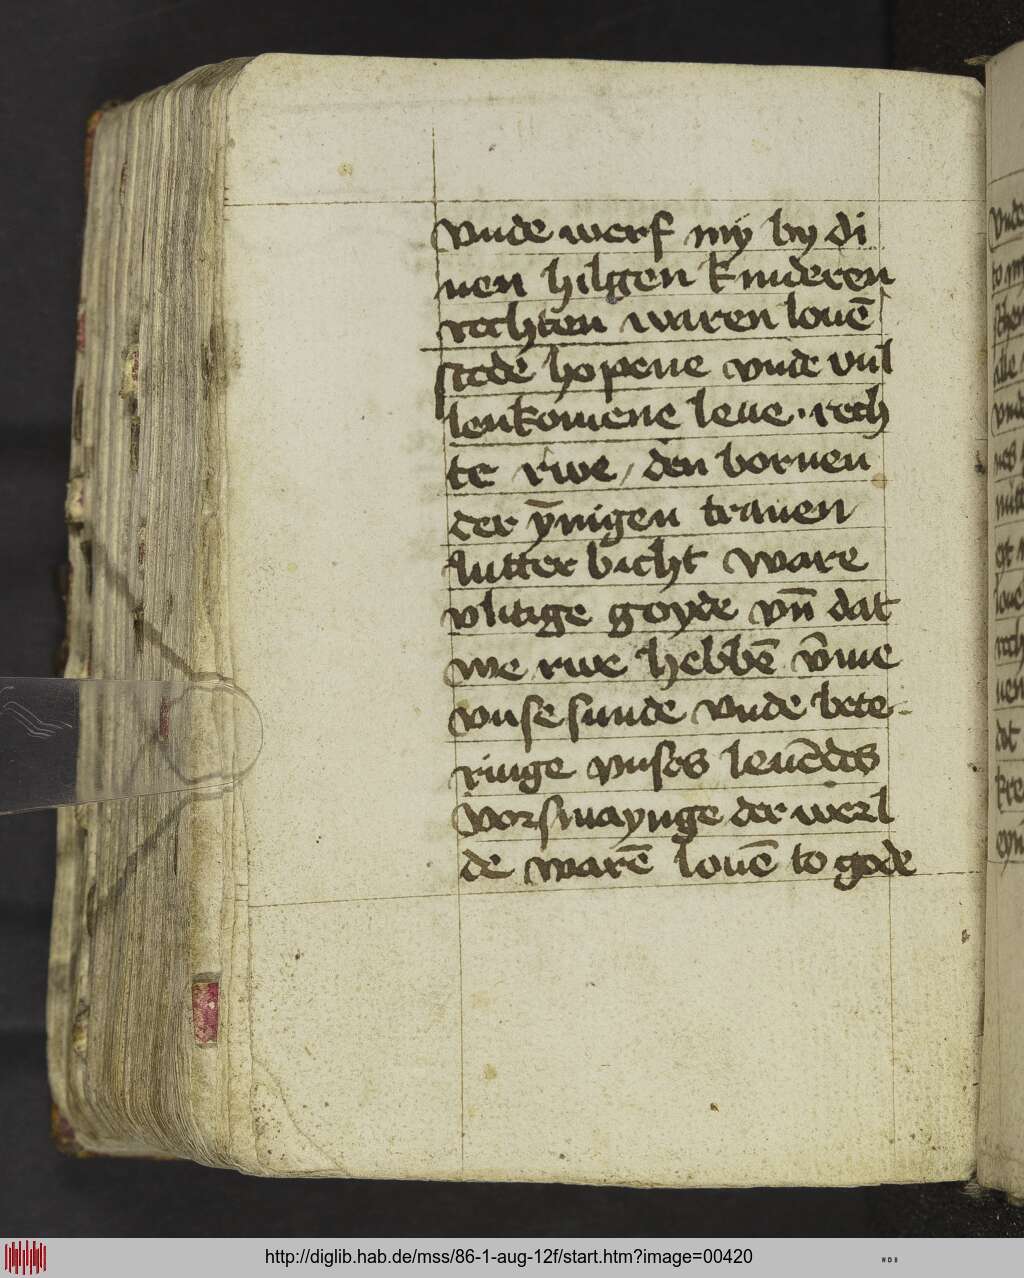 vnde werf my by di
nen hilgen kinderen
rechten waren louē
stede hopene vnde vul
lenkomene leue · rech
te rwe / den bornen
der ynnigen tranen
lutter bicht ware
vlitige goyde vn̄ dat
we rwe hebbē v̄me
vnse sunde vnde bete
ringe vnses leuēdes
vorsmaynge der werl
de warē louē to gode
http://diglib.hab.de/mss/86-1-aug-12f/start.htm?image=00420